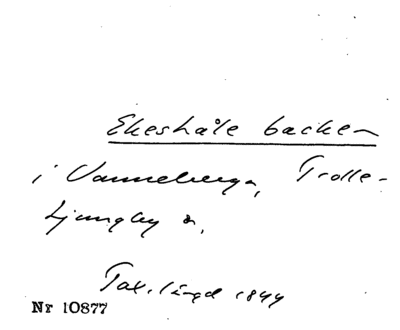 Ekeshåle backen
i Vanneberga, Trolle-
Ljungby s.
Tax. längd 1844
Nr 10877